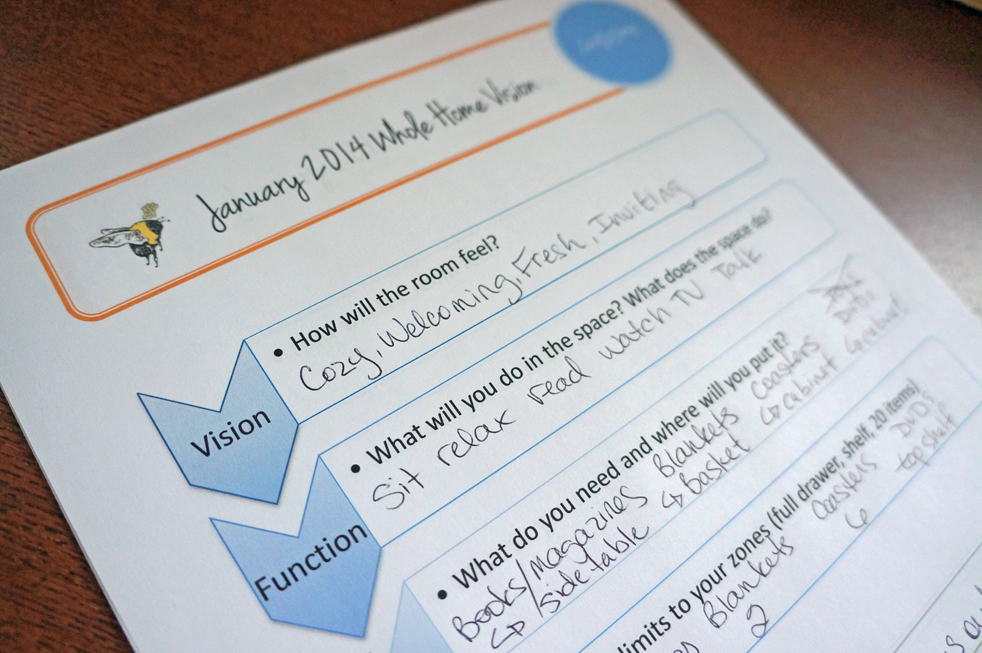 January 2014 Whole Home Vision
Vision
• How will the room feel?
Cozy, Welcoming, Fresh, Inviting
Function
• What will you do in the space? What does the space do?
Sit relax read watch TV Talk
• What do you need and where will you put it?
Books/magazines Blankets Coasters DVDs
↳ side table ↳ basket ↳ cabinet ↳ cabinet
limits to your zones (full drawer, shelf, 20 items)
Blankets Coasters DVDs
2 6 top shelf